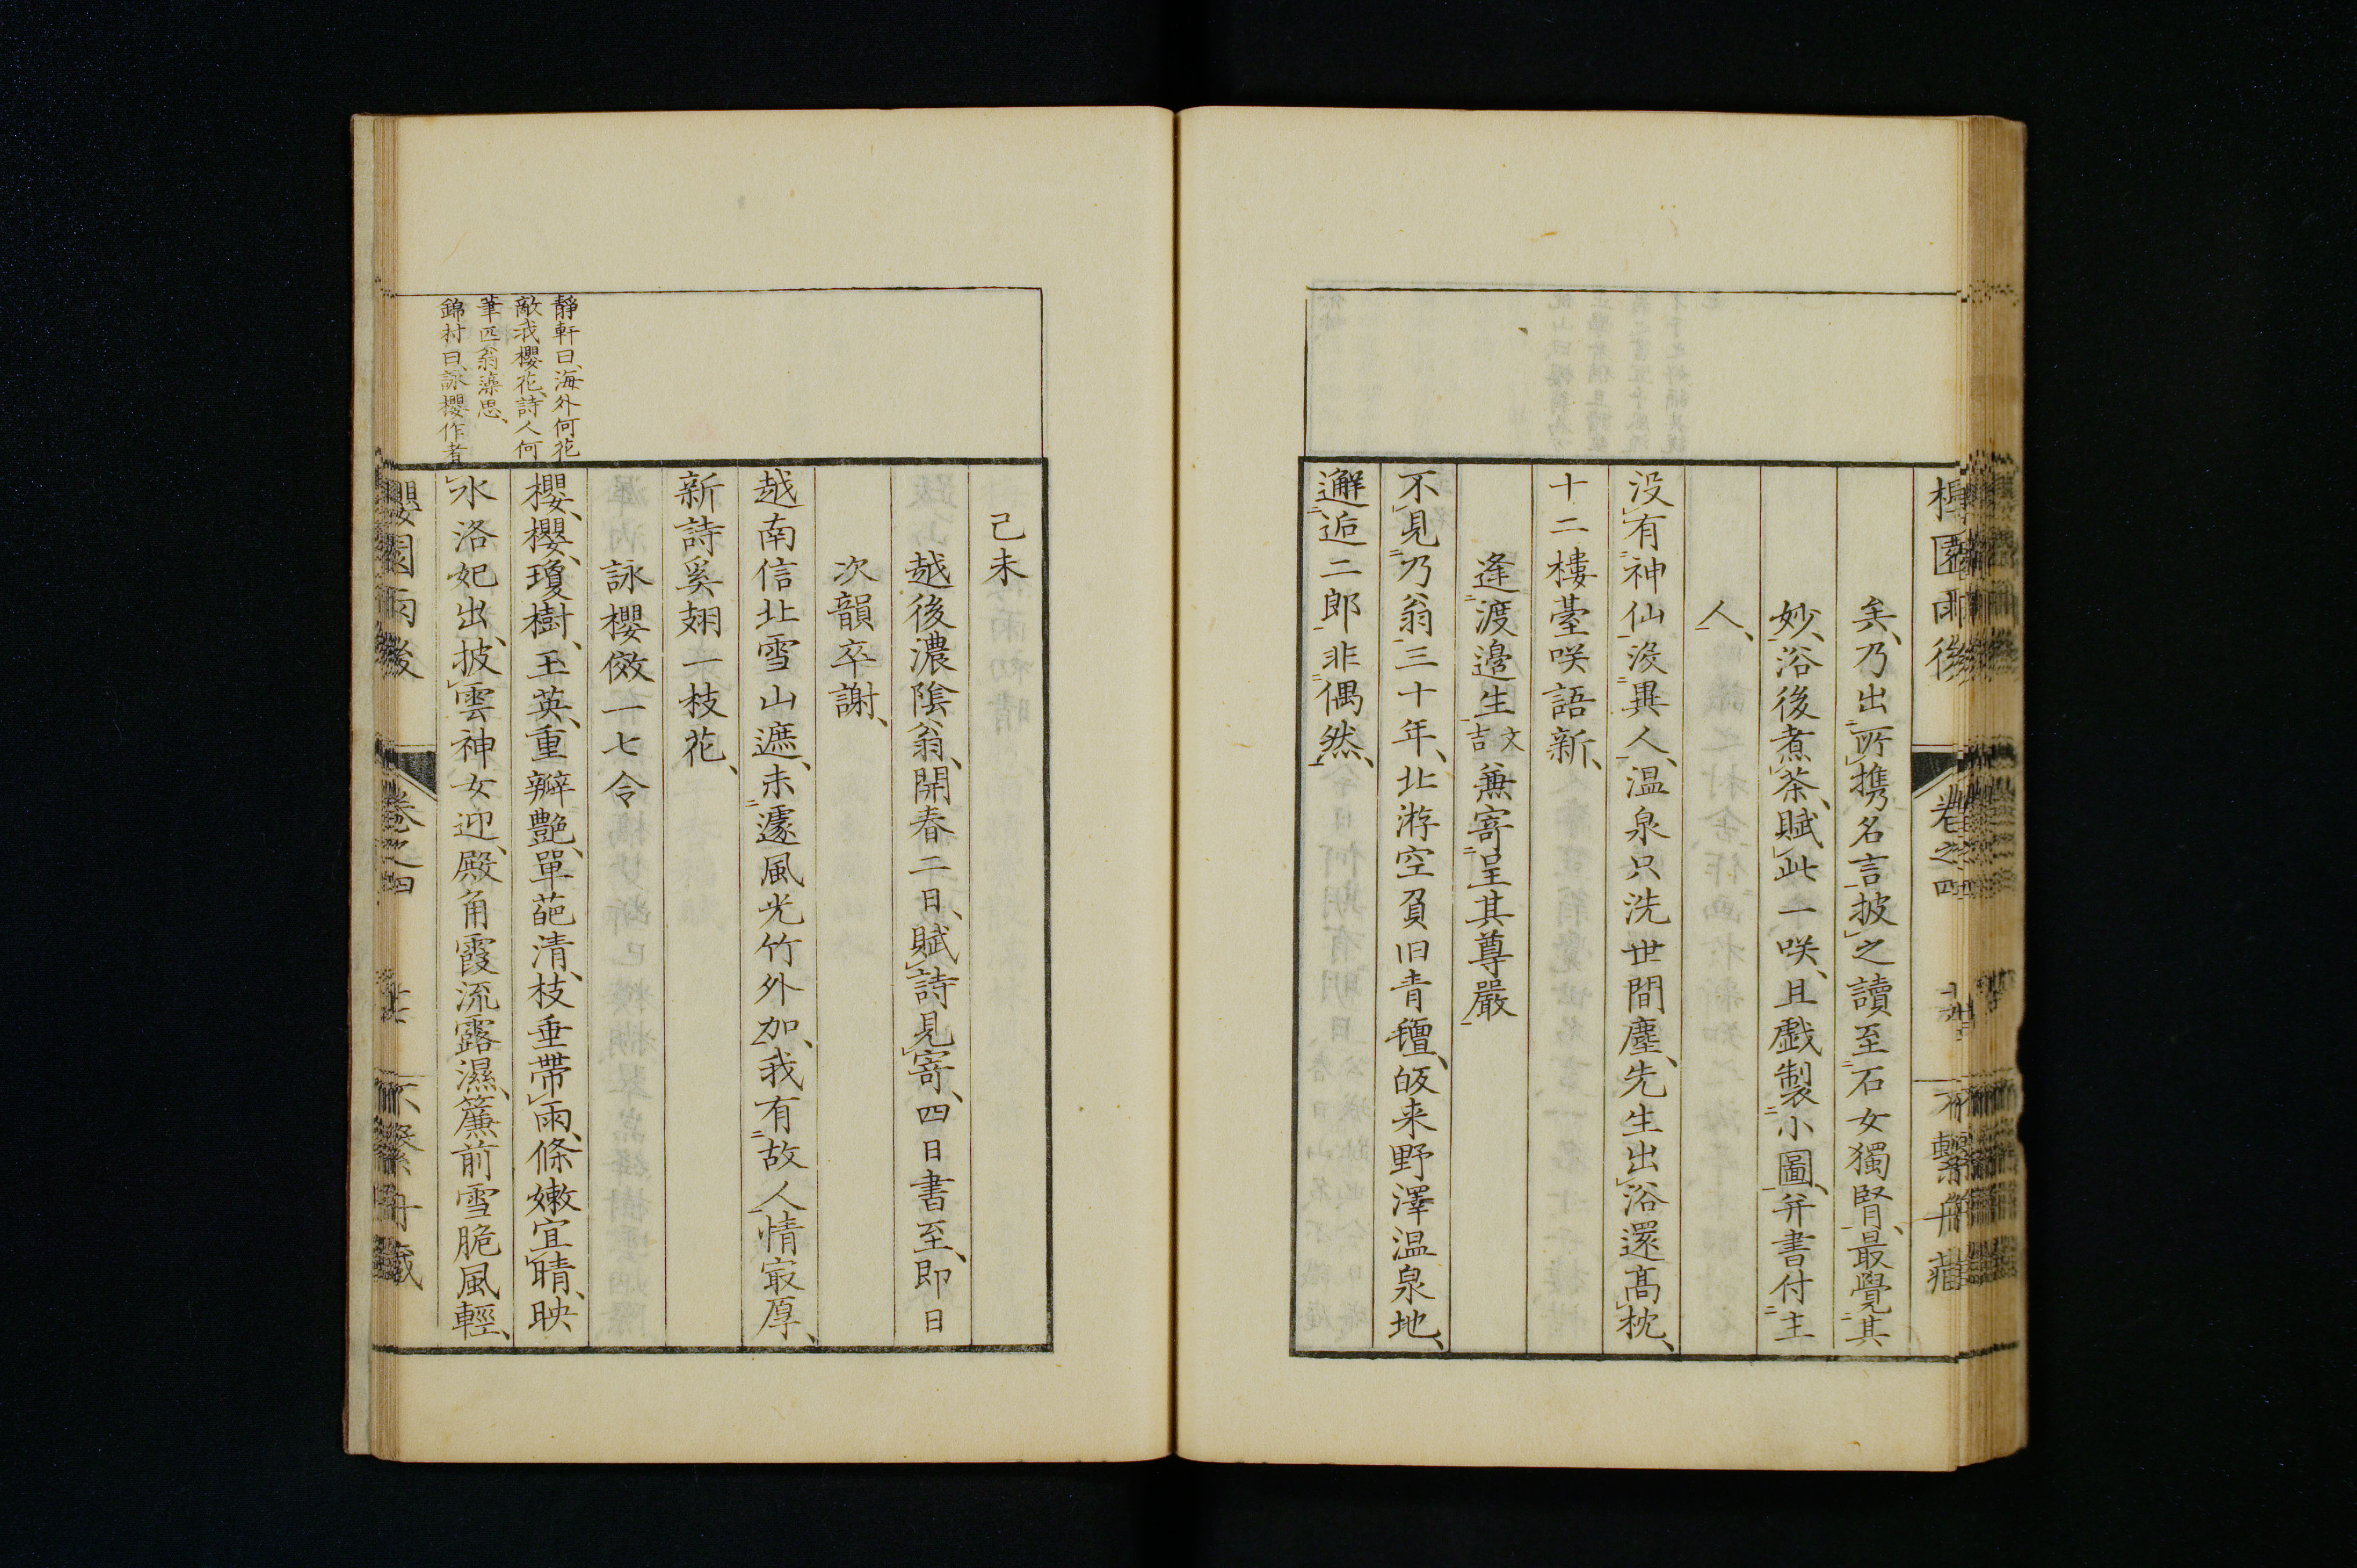 矣、乃出所携名言披之讀至石女獨腎、最覺其
妙、浴後煮茶、賦此一咲、且戲製小圖、并書付主
人、
没有神仙没異人、温泉只洗世間塵、先生出浴還髙枕、
十二樓臺咲語新、
逢渡邉生文吉兼寄呈其尊嚴
不見乃翁三十年、北游空負旧青氊、皈来野澤温泉地、
邂逅二郎非偶然、
己未
越後濃陰翁、開春二日、賦詩見寄、四日書至、即日
次韻卒謝、
越南信北雪山遮、未遽風光竹外加、我有故人情㝡厚、
新詩奚翅一枝花、
詠櫻傚一七令
櫻、櫻、瓊樹、玉英、重瓣艶、單葩清、枝垂帶雨、條嫩宜晴、映
水洛妃出、披雲神女迎、殿角霞流露濕、簾前雪脆風輕、
靜軒曰、海外何花
敵我櫻花、詩人何
筆匹翁藻思、
錦村曰、詠櫻作者
櫻園雨後 卷之四